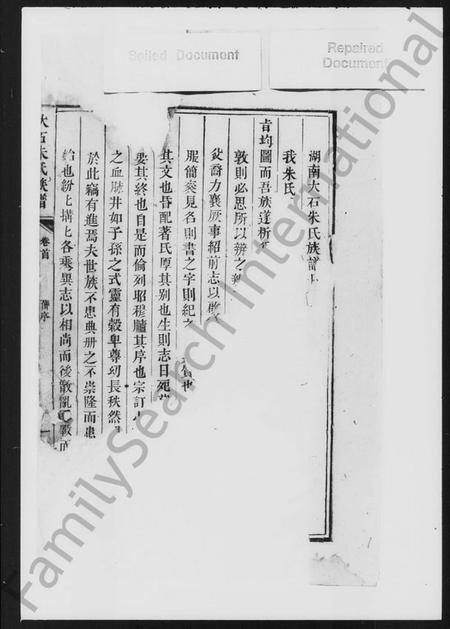 Soiled Document
Repaired Document
湖南大石朱氏族譜
我朱氏
均圖而吾族遂析
敦則必思所以辨之
喬力襄厥事紹前志以啟
服簡奕見名則書之字則紀之
其文也昏配著氏厚其別也生則志日死
要其終也自是而倫列昭穆臚其序也宗訂
之血脉井如子孫之式靈有穀卑尊幼長秩然
於此竊有進焉夫世族不患典冊之不崇隆而患
給也紛紛搆七各乘異志以相尚而後散亂
大石朱氏族譜
卷首
舊序
FamilySearch International